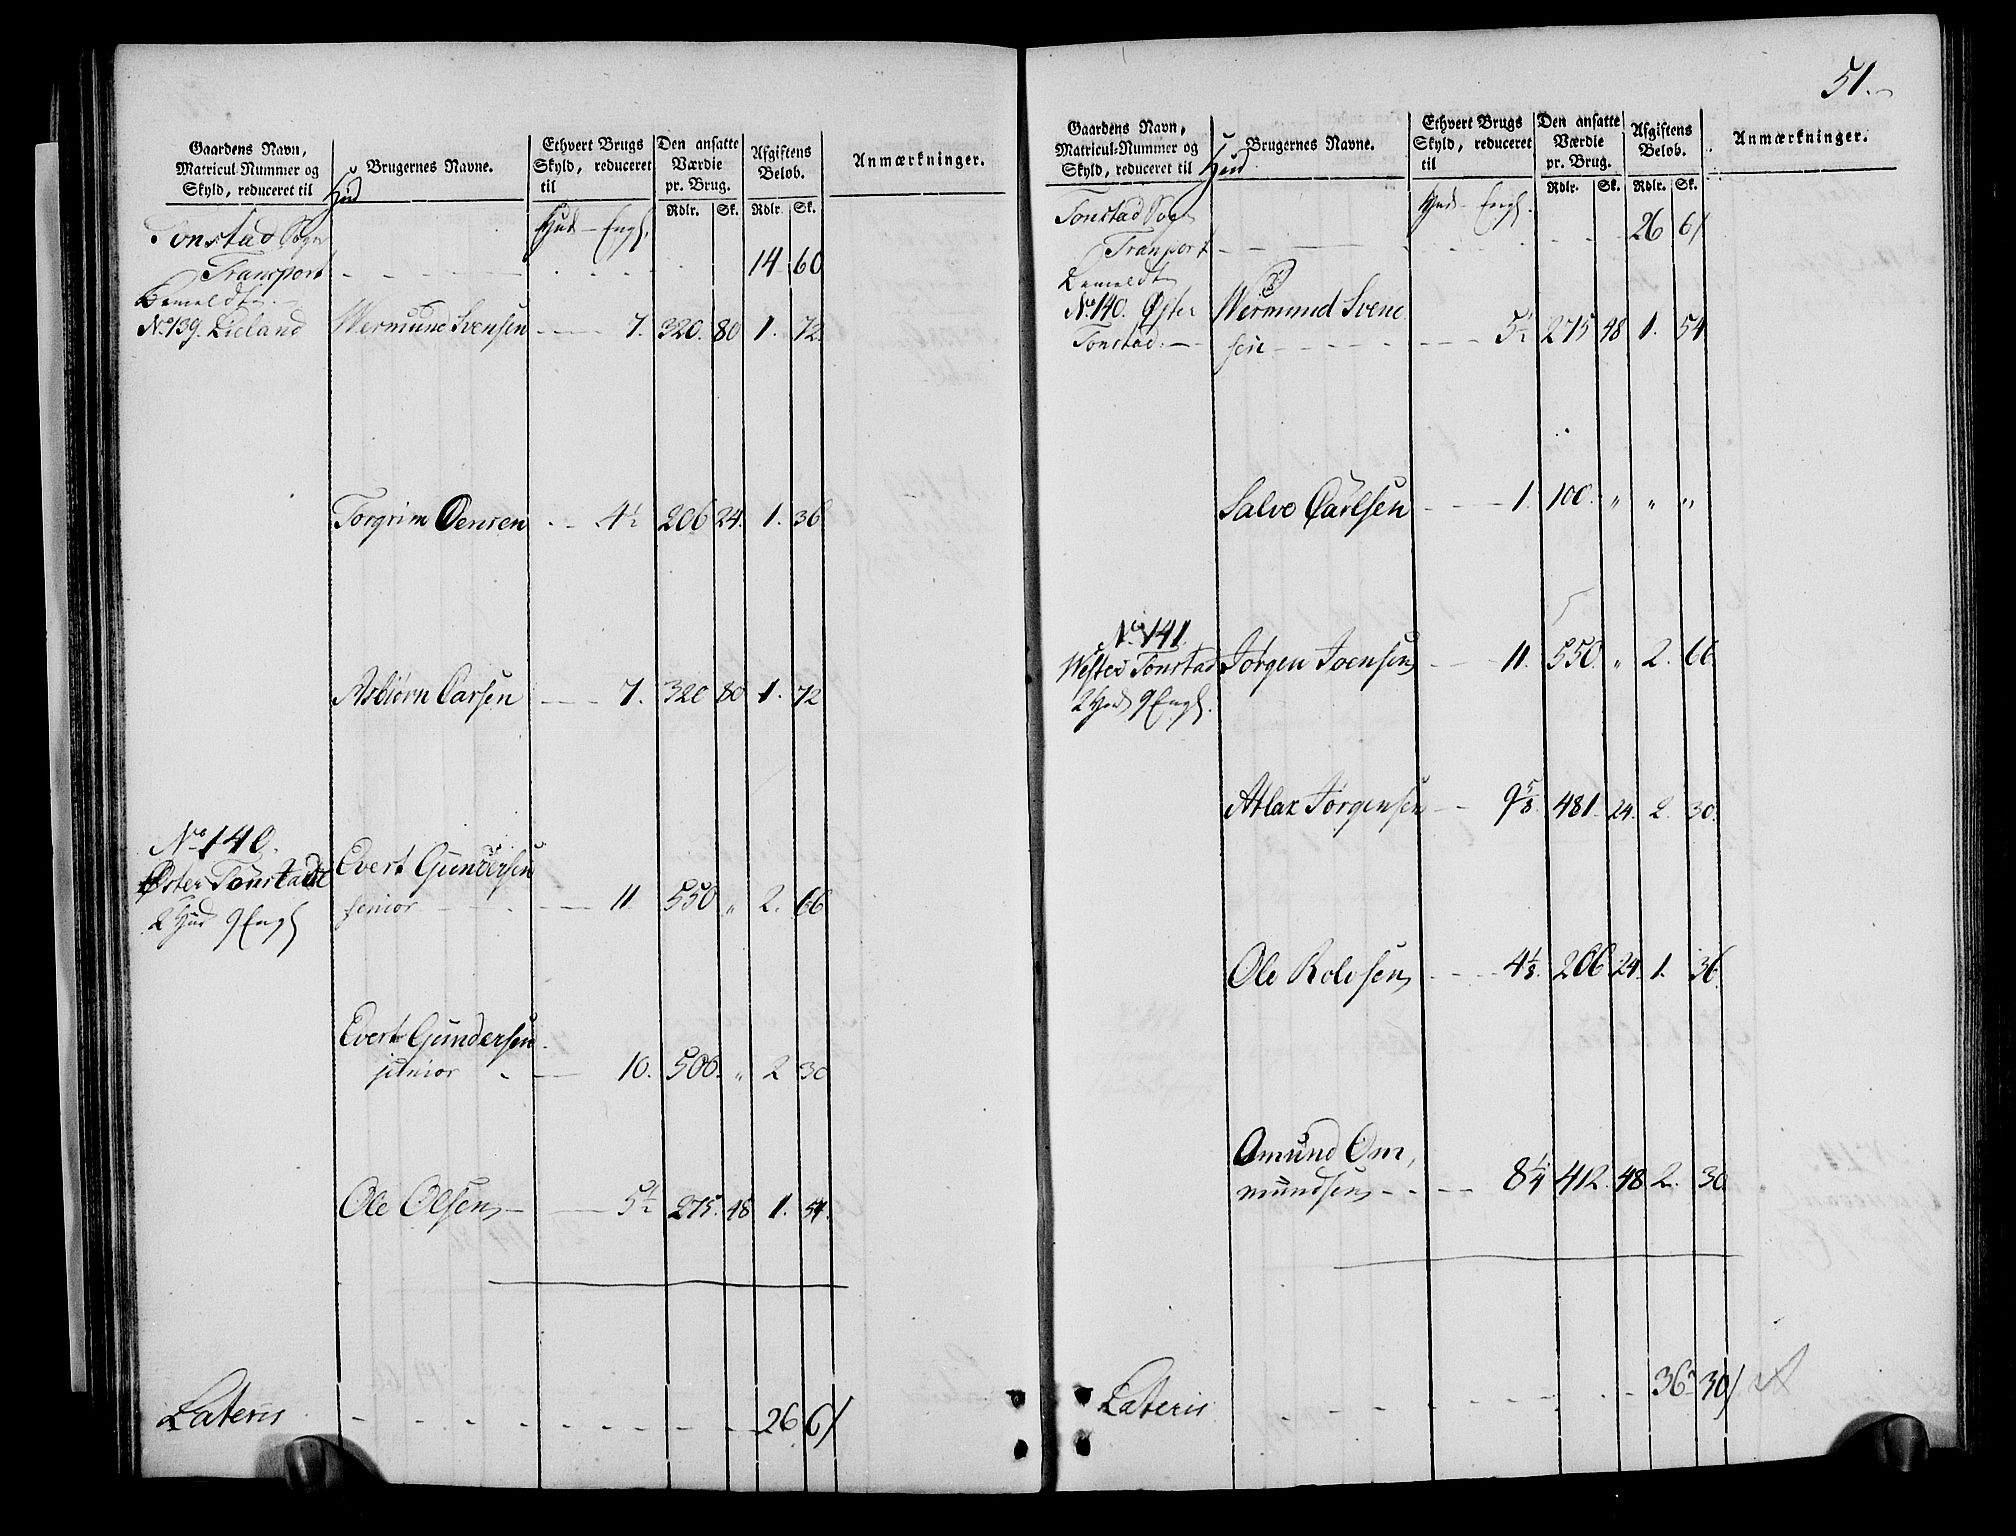 Gaardens Navn, Matricul-Nummer og Skyld, reduceret til Hud
Brugernes Navne.
Ethvert Brugs Skyld, reduceret til
Den ansatte Værdie pr. Brug.
Afgiftens Beløb.
Anmærkninger.
Rdlr. Sk. Rdlr. Sk.
Tonstad Sogn Hud — Engl.
Transport - - - 14 60
Bemeldte
No 139. Lieland Wermund Svensen - - - 7. 320. 80 1. 72.
Torgrim Oensen - - 4½ 206 24. 1. 36
Asbiörn Carlsen - - - 7. 320 80 1. 72
No 140.
Øster Tonstad Evert Gundersen
2 Hud 9 Engl senior - - - 11. 550 „ 2. 66
Evert Gundersen
junior - - 10. 500. „ 2 30
Ole Olsen - - 5½ 275. 48 1. 54.
Lateris - - - 26 6/
51.
Gaardens Navn, Matricul-Nummer og Skyld, reduceret til Hud
Brugernes Navne.
Ethvert Brugs Skyld, reduceret til
Den ansatte Værdie pr. Brug.
Afgiftens Beløb.
Anmærkninger.
Rdlr. Sk. Rdlr. Sk.
Tonstad Sogn Hud — Engl.
Transport - - - 26 6/
Bemeldte
No 140. Øster Wermund Svene
Tonstad. sen - - - 5½ 275 48 1. 54
Salve Carlsen - - - 1. 100. „ „ „
No 141.
Wester Tonstad Jörgen Joensen - - 11. 550. „ 2. 66.
2 Hud 9 Engl.
Atlax Jörgensen - - 9⅝ 481. 24. 2. 30.
Ole Rolvsen - - - 4⅛. 206 24. 1. 36.
Omund Om,
mundsen - - - 8¼ 412. 48 2. 30
Lateris - - - 36 30/